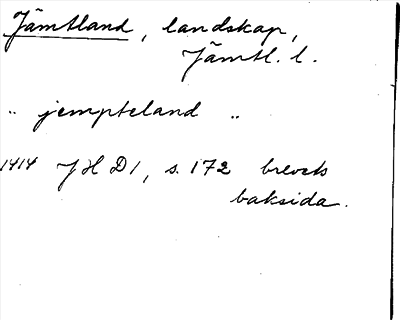 Jämtland, landskap,
Jämtl. l.
„ jempteland „
1414 JHD1, s. 172 brevets
baksida.